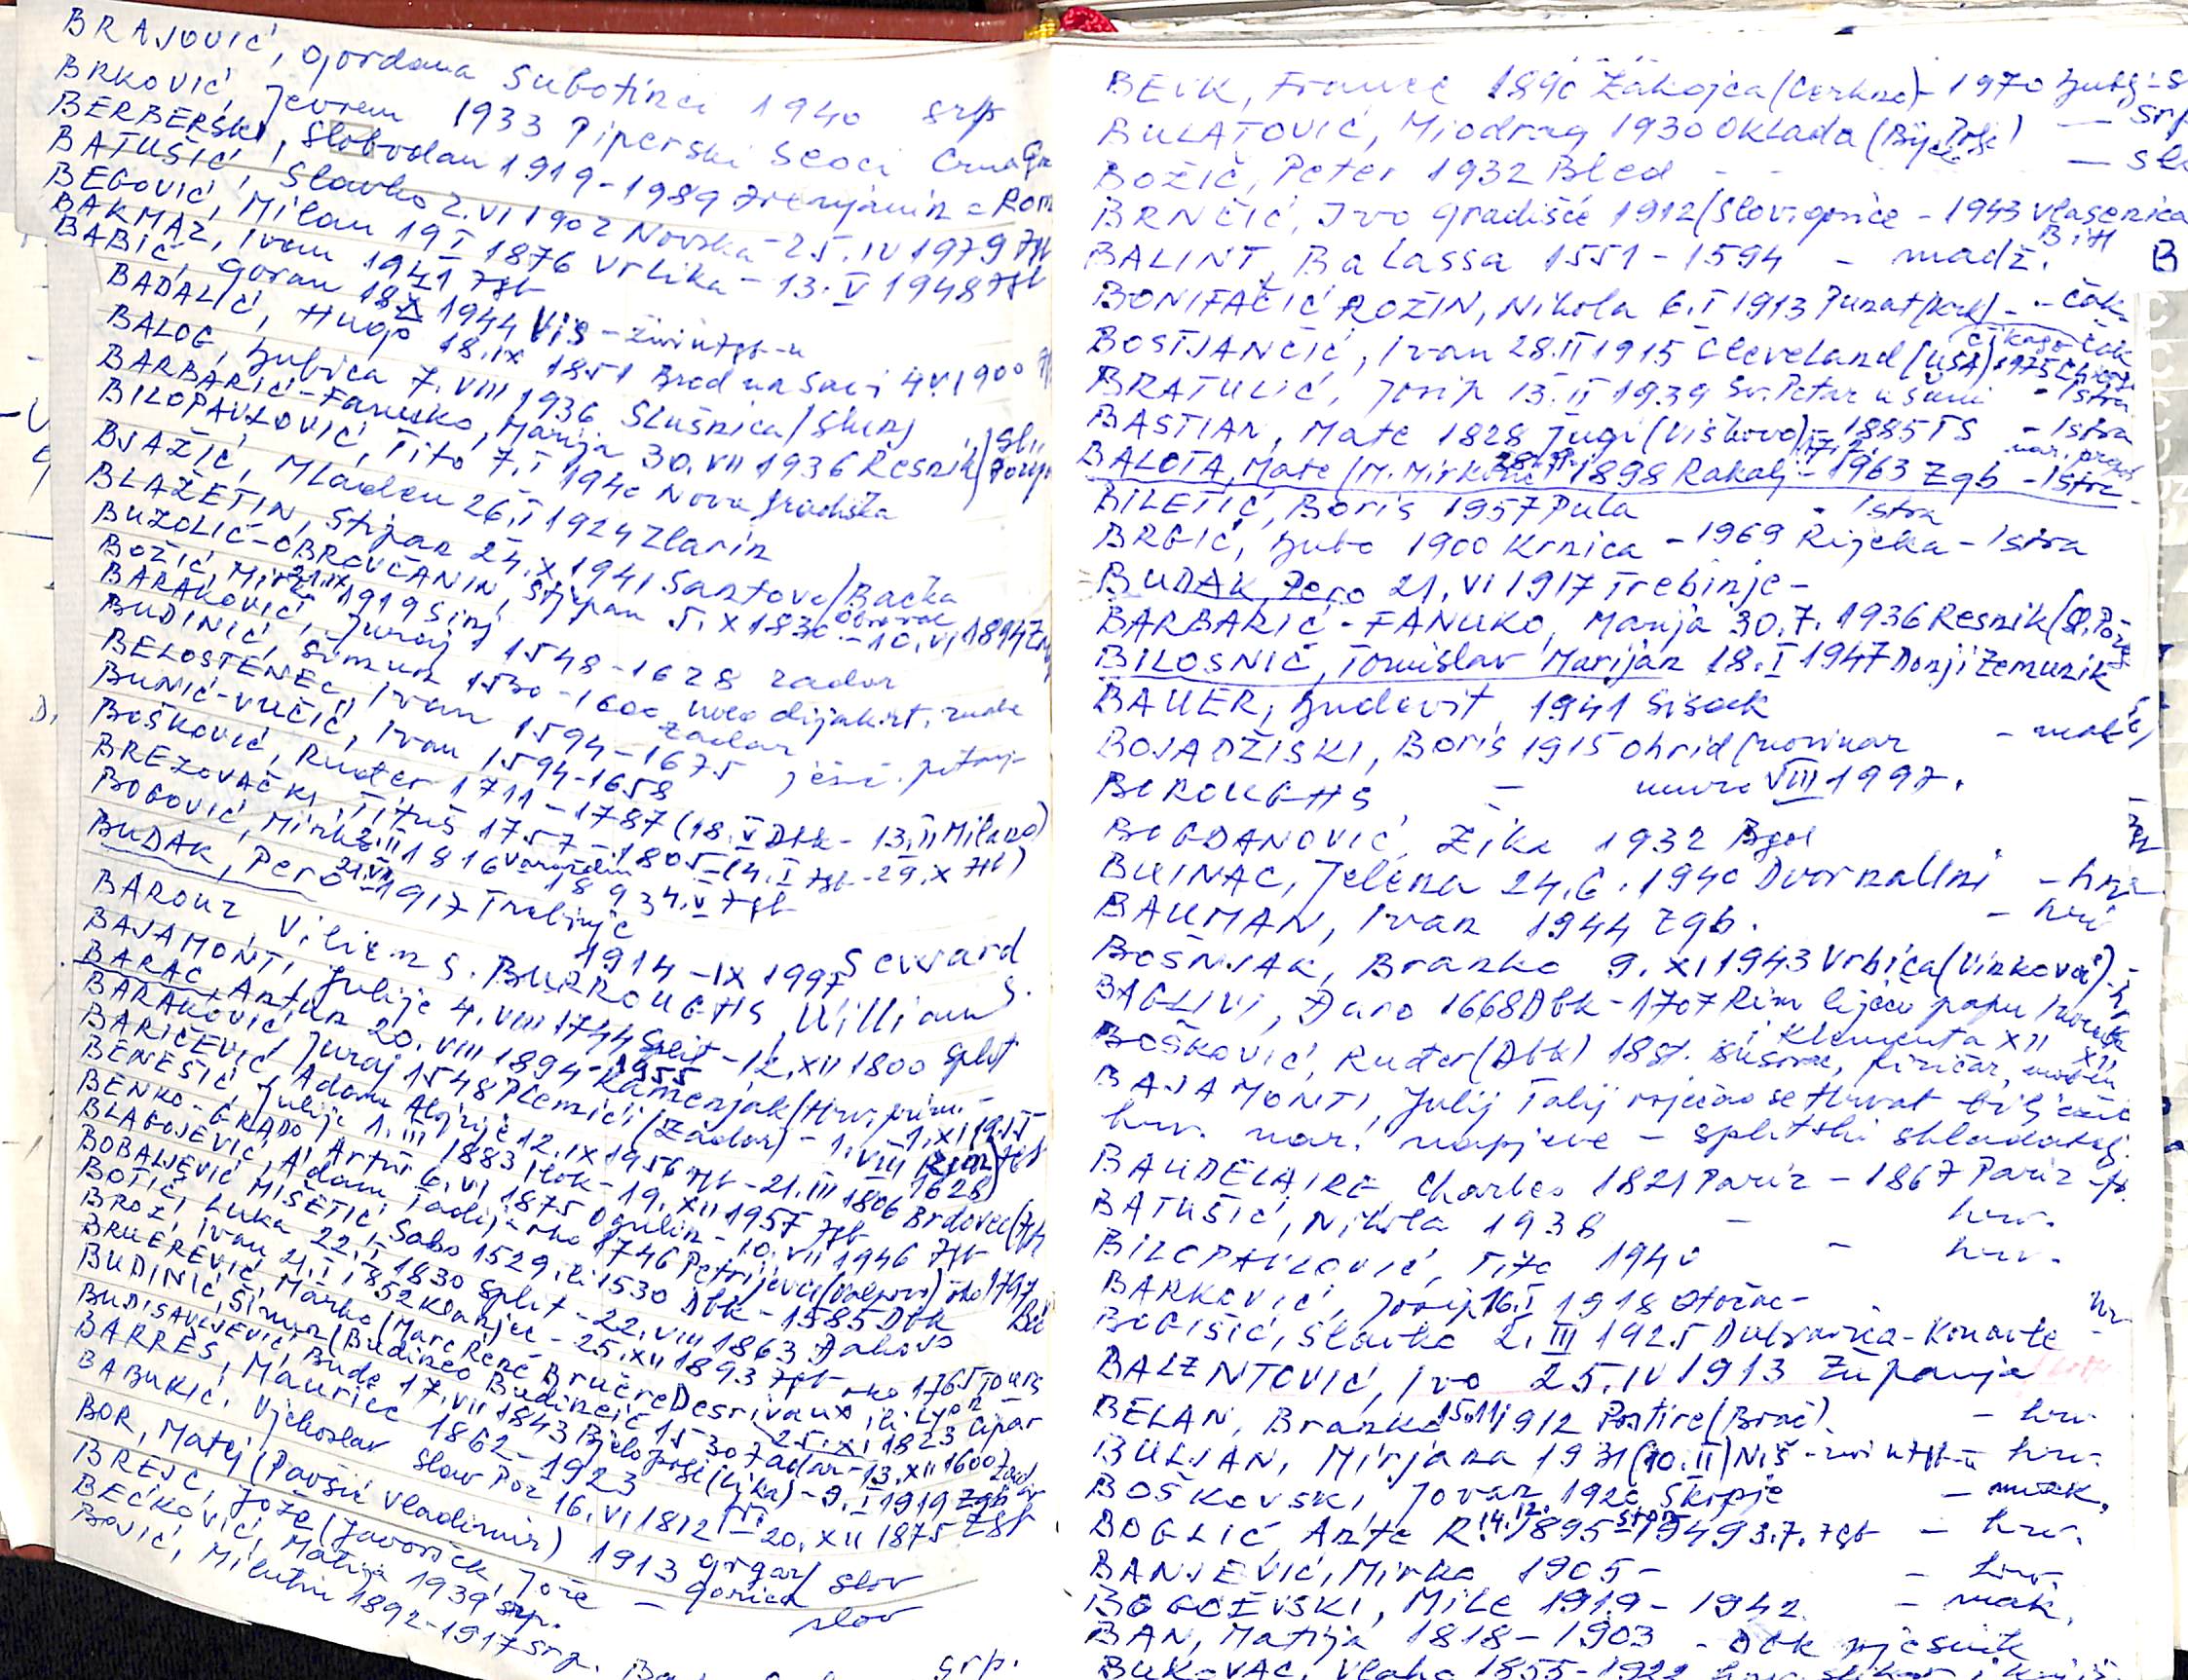 BRAJOVIĆ, Gordana Subotinci 1940 srp
BRKOVIĆ, Jevrem 1933 Piperski Seoci Crna Gora
BERBERSKI, Slobodan 1919-1989 Zrenjanin - Rom
BATUŠIĆ, Slavko 2.VI 1902 Novska - 25.IV 1979 Zgb
BEGOVIĆ, Milan 19 I 1876 Vrlika - 13.V 1948 Zgb
BAKMAZ, Ivan 1941 Zgb
BABIĆ, Goran 18 X 1944 Vis - živi u Zgb-u
BADALIĆ, Hugo 18.IX 1851 Brod na Savi 4.V.1900
BALOG, Ljubica 7.VIII 1936 Slušnica/Slunj
BARBARIĆ-FANUKO, Marija 30.VII 1936 Resnik
BILOPAVLOVIĆ, Tito 7.I 1940 Nova Gradiška
BJAŽIĆ, Mladen 26.I 1924 Zlarin
BLAŽETIN, Stjepan 24.X 1941 Santovo/Bačka
BUZOLIĆ-OBROVČANIN, Stjepan 5.X 1830 Obrovac - 10.VI 1894
BOŽIĆ, Mirko 21.IX 1919 Sinj
BARAKOVIĆ, Juraj 1548-1628 Zadar
BUDINIĆ, Šimun 1530-1600 Zadar
BELOSTENEC, Ivan 1594-1675
BUNIĆ-VUČIĆ, Ivan 1594-1658
BOŠKOVIĆ, Ruđer 1711-1787 (18.V Dbk - 13.II Milano)
BREZOVAČKI, Tituš 1757-1805 (4.I Zgb - 29.X Zgb)
BOGOVIĆ, Mirko 2.II 1816 Varaždin 1893 4.V Zgb
BUDAK, Pero 21.VI 1917 Trebinje
BAROUZ, Viliem S. BURROUGHS, William Seward
1914 - IX 1997 S.
BAJAMONTI, Julije 4.VIII 1744 Split - 12.XII 1800 Split
BARAC, Antun 20.VIII 1894 Kamenjak (Hrv. prim. - 1.XI 1955 Zgb
BARAKOVIĆ, Juraj 1548 Plemići (Zadar) - 1.VIII 1628
BARIČEVIĆ, Adam Alojzije 12.IX 1756 Zgb - 21.III 1806 Brdovec
BENEŠIĆ, Julije 1.III 1883 Ilok - 19.XII 1957 Zgb
BENKO-GRADO, Artur 6.VI 1875 Ogulin - 10.VII 1946 Zgb
BLAGOJEVIĆ, Adam Tadija oko 1746 Petrijevci (Valpovo) oko 1797 Beč
BOBALJEVIĆ MIŠETIĆ, Sabo 1529 ili 1530 Dbk - 1585 Dbk
BOTIĆ, Luka 22.I 1830 Split - 22.VIII 1863 Đakovo
BROZ, Ivan 21.I 1852 Klanjec - 25.XII 1893 Zgb
BRUEREVIĆ, Marko (Marc René Bruère Desrivaux, oko 1765 Tours ili Lyon 25.XI 1823 Cipar
BUDINIĆ, Šimun (Budineo Budinčić 1530 Zadar - 13.XII 1600 Zadar
BUDISAVLJEVIĆ, Bude 17.VII 1843 Bjelo polje (Lika) - 9.I 1919 Zgb
BARRÈS, Maurice 1862-1923
BABUKIĆ, Vjekoslav Slav Pož 16.VI 1812 - 20.XII 1875 Zgb
BOR, Matej (Pavšič Vladimir) 1913 Grgar/Gorica slov
BREJC, Jože (Javoršek, Jože - slov
BEĆKOVIĆ, Matija 1939 srp.
BOJIĆ, Milutin 1892-1917 srp.
srp.
BEVK, France 1890 Zakojca (Cerkno) - 1970
BULATOVIĆ, Miodrag 1930 Oklada (Bijelo Polje) - srp
BOŽIČ, Peter 1932 Bled - slo
BRNČIĆ, Ivo Gradišče 1912 (Slov. gorice - 1943 Vlasenica BiH
B
BALINT, Balassa 1551-1594 - madž.
BONIFAČIĆ ROŽIN, Nikola 6.I 1913 Punat (Krk) - čak.
BOSTJANČIĆ, Ivan 28.II 1915 Cleveland (USA) 1975 Čikago čak
BRATULIĆ, Josip 13.II 1939 Sv. Petar u Šumi - Istra
BASTIAN, Mate 1828 Jugi (Viškovo) - 1885 TS - Istra
BALOTA, Mate (M. Mirković 1898 Rakalj - 1963 Zgb - Istra
BILETIĆ, Boris 1957 Pula - Istra
BRGIĆ, Ljubo 1900 Krnica - 1969 Rijeka - Istra
BUDAK, Pero 21.VI 1917 Trebinje -
BARBARIĆ-FANUKO, Marija 30.7.1936 Resnik
BILOSNIĆ, Tomislav Marijan 18.I 1947 Donji Zemunik
BAUER, Ljudevit, 1941 Sisak
BOJADŽISKI, Boris 1915 Ohrid (novinar - mak
BOROUGHS - umro VIII 1997.
BOGDANOVIĆ, Žika 1932 Bgd
BUINAC, Jelena 24.6.1940 Dvor na Uni - hrv.
BAUMAN, Ivan 1944 Zgb. - hrv
BOŠNJAK, Branko 9.XI 1943 Vrbica (Vinkovci) -
BAGLIVI, Đuro 1668 Dbk - 1707 Rim liječio papu
i Klementa XII
BOŠKOVIĆ, Ruđer (Dbk) 18 st. fizičar,
BAJAMONTI, Julij Talij osjećao se Hrvat bilježio
hrv. nar. napjeve - splitski skladatelj.
BAUDELAIRE, Charles 1821 Pariz - 1867 Pariz - fr.
BATUŠIĆ, Nikola 1938 - hrv.
BILOPAVLOVIĆ, Tito 1940 - hrv.
BARKOVIĆ, Josip 16.I 1918 Otočac -
BOGIŠIĆ, Slavko 2.III 1925 Dubravka - Konavle -
BALENTOVIĆ, Ivo 25.IV 1913 Županja
BELAN, Branko 15.11 1912 Postire (Brač) - hrv
BULJAN, Mirjana 1931 (10.II) Niš - živi u Zgb-u hrv.
BOŠKOVSKI, Jovan 1920 Skopje - mak.
BOGLIĆ, Ante R. 14.12.1895 - 1949 3.7. Zgb - hrv.
BANJEVIĆ, Mirko 1905 - hrv.
BOGOEVSKI, Mile 1919-1942 - mak.
BAN, Matija 1818-1903 - Dbk pjesnik
BUKOVAC, Vlaho 1855-1922